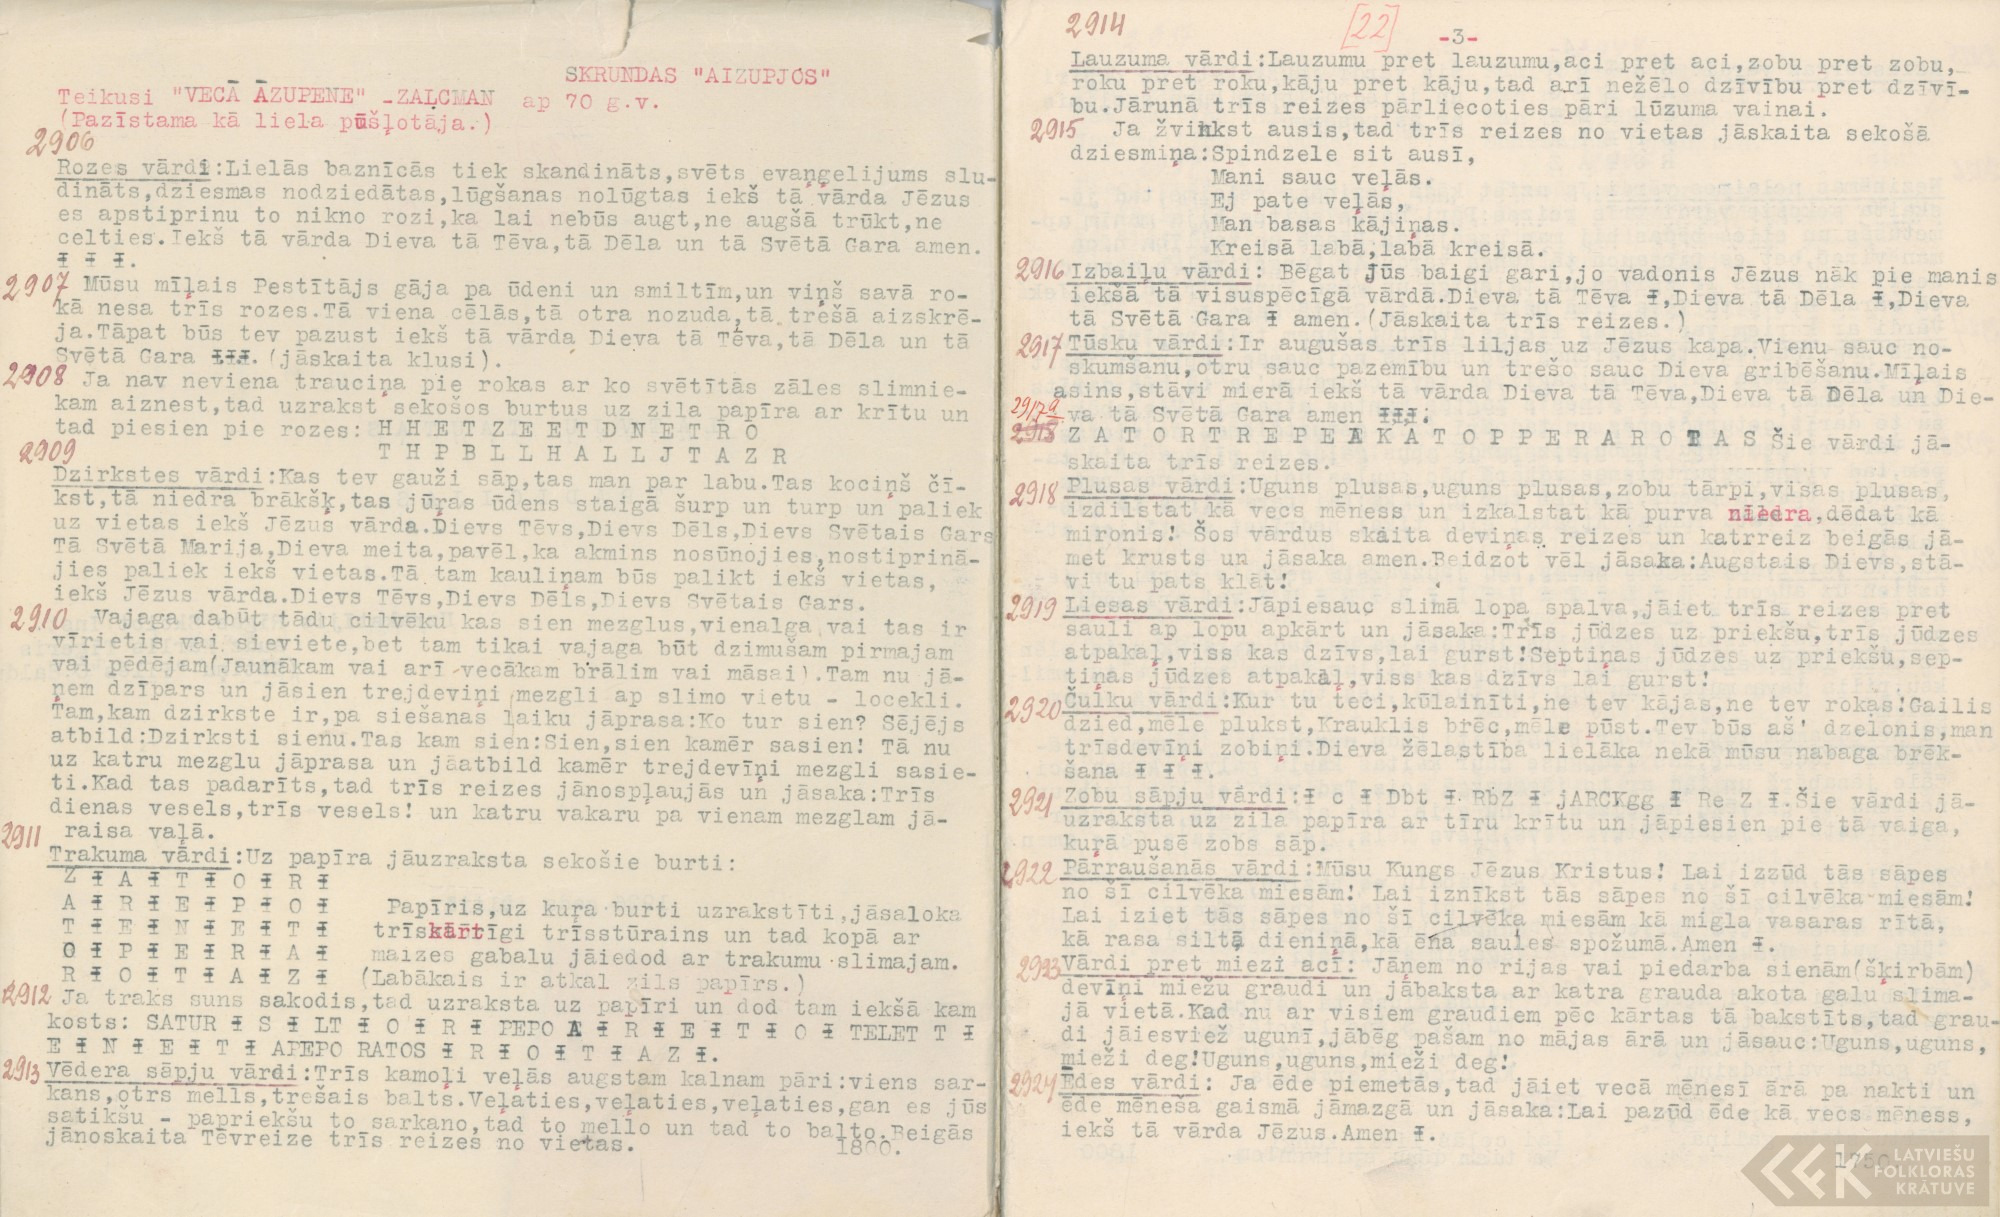 SKRUNDAS "AIZUPJOS"
Teikusi "VECĀ ĀZUPENE" -ZAĻCMAN ap 70 g.v.
(Pazīstama kā liela pūšļotāja.)
2906
Rozes vārdi:Lielās baznīcās tiek skandināts,svēts evaņgelijums slu-
dināts,dziesmas nodziedātas,lūgšanas nolūgtas iekš tā vārda Jēzus
es apstiprinu to nikno rozi,ka lai nebūs augt,ne augšā trūkt,ne
celties.Iekš tā vārda Dieva tā Tēva,tā Dēla un tā Svētā Gara amen.
Ɨ Ɨ Ɨ.
2907 Mūsu mīļais Pestītājs gāja pa ūdeni un smiltīm,un viņš savā ro-
kā nesa trīs rozes.Tā viena cēlās,tā otra nozuda,tā trešā aizskrē-
ja.Tāpat būs tev pazust iekš tā vārda Dieva tā Tēva,tā Dēla un tā
Svētā Gara ƗƗƗ. (jāskaita klusi).
2908 Ja nav neviena trauciņa pie rokas ar ko svētītās zāles slimnie-
kam aiznest,tad uzrakst sekošos burtus uz zila papīra ar krītu un
tad piesien pie rozes: H H E T Z E E T D N E T R O
2909 T H P B L L H A L L J T A Z R
Dzirkstes vārdi:Kas tev gauži sāp,tas man par labu.Tas kociņš čī-
kst,tā niedra brākšķ,tas jūŗas ūdens staigā šurp un turp un paliek
uz vietas iekš Jēzus vārda.Dievs Tēvs,Dievs Dēls,Dievs Svētais Gars
Tā Svētā Marija,Dieva meita,pavēl,ka akmins nosūnojies,nostiprinā-
jies paliek iekš vietas.Tā tam kauliņam būs palikt iekš vietas,
iekš Jēzus vārda.Dievs Tēvs,Dievs Dēls,Dievs Svētais Gars.
2910 Vajaga dabūt tādu cilvēku kas sien mezglus,vienalga vai tas ir
vīrietis vai sieviete,bet tam tikai vajaga būt dzimušam pirmajam
vai pēdējam(Jaunākam vai arī vecākam brālim vai māsai).Tam nu jā-
ņem dzīpars un jāsien trejdeviņi mezgli ap slimo vietu - locekli.
Tam,kam dzirkste ir,pa siešanas laiku jāprasa:Ko tur sien? Sējējs
atbild:Dzirksti sienu.Tas kam sien:Sien,sien kamēr sasien! Tā nu
uz katru mezglu jāprasa un jāatbild kamēr trejdevīņi mezgli sasie-
ti.Kad tas padarīts,tad trīs reizes jānospļaujās un jāsaka:Trīs
dienas vesels,trīs vesels! un katru vakaru pa vienam mezglam jā-
raisa vaļā.
2911
Trakuma vārdi:Uz papīra jāuzraksta sekošie burti:
Z Ɨ A Ɨ T Ɨ O Ɨ R Ɨ
A Ɨ R Ɨ E Ɨ P Ɨ O Ɨ Papīris,uz kuŗa burti uzrakstīti,jāsaloka
T Ɨ E Ɨ N Ɨ E Ɨ T Ɨ trīskārtīgi trīsstūrains un tad kopā ar
O Ɨ P Ɨ E Ɨ R Ɨ A Ɨ maizes gabalu jāiedod ar trakumu slimajam.
R Ɨ O Ɨ T Ɨ A Ɨ Z Ɨ (Labākais ir atkal zils papīrs.)
2912 Ja traks suns sakodis,tad uzraksta uz papīri un dod tam iekšā kam
kosts: SATUR Ɨ S Ɨ LT Ɨ O Ɨ R Ɨ PEPO A Ɨ R Ɨ E Ɨ T Ɨ O Ɨ TELET T Ɨ
E Ɨ N Ɨ E Ɨ T Ɨ APEPO RATOS Ɨ R Ɨ O Ɨ T Ɨ A Z Ɨ.
2913 Vēdera sāpju vārdi:Trīs kamoļi veļās augstam kalnam pāri:viens sar-
kans,otrs mells,trešais balts.Veļaties,veļaties,veļaties,gan es jūs
satikšu - papriekšu to sarkano,tad to mello un tad to balto.Beigās
jānoskaita Tēvreize trīs reizes no vietas. 1800.
2914 [22] -3-
Lauzuma vārdi:Lauzumu pret lauzumu,aci pret aci,zobu pret zobu,
roku pret roku,kāju pret kāju,tad arī nežēlo dzīvību pret dzīvī-
bu.Jārunā trīs reizes pārliecoties pāri lūzuma vainai.
2915 Ja žvinkst ausis,tad trīs reizes no vietas jāskaita sekošā
dziesmiņa:Spindzele sit ausī,
Mani sauc veļās.
Ej pate veļās,
Man basas kājiņas.
Kreisā labā,labā kreisā.
2916 Izbaiļu vārdi: Bēgat jūs baigi gari,jo vadonis Jēzus nāk pie manis
iekšā tā visuspēcīgā vārdā.Dieva tā Tēva Ɨ,Dieva tā Dēla Ɨ,Dieva
tā Svētā Gara Ɨ amen.(Jāskaita trīs reizes.)
2917 Tūsku vārdi:Ir augušas trīs liljas uz Jēzus kapa.Vienu sauc no-
skumšanu,otru sauc pazemību un trešo sauc Dieva gribēšanu.Mīļais
asins,stāvi mierā iekš tā vārda Dieva tā Tēva,Dieva tā Dēla un Die-
2917a va tā Svētā Gara amen ƗƗƗ.
2918 Z A T O R T R E P E A K A T O P P E R A R O T A S Šie vārdi jā-
skaita trīs reizes.
2918 Plusas vārdi:Uguns plusas,uguns plusas,zobu tārpi,visas plusas,
izdilstat kā vecs mēness un izkalstat kā purva niedra,dēdat kā
mironis! Šos vārdus skaita deviņas reizes un katrreiz beigās jā-
met krusts un jāsaka amen.Beidzot vēl jāsaka:Augstais Dievs,stā-
vi tu pats klēt!
2919 Liesas vārdi:Jāpiesauc slimā lopa spalva,jāiet trīs reizes pret
sauli ap lopu apkārt un jāsaka:Trīs jūdzes uz priekšu,trīs jūdzes
atpakaļ,viss kas dzīvs,lai gurst!Septiņas jūdzes uz priekšu,sep-
tiņas jūdzes atpakāļ,viss kas dzīvs lai gurst!
2920 Čulku vārdi:Kur tu teci,kūlainīti,ne tev kājas,ne tev rokas!Gailis
dzied,mēle plukst,Krauklis brēc,mēle pūst.Tev būs aš' dzelonis,man
trīsdevīņi zobiņi.Dieva žēlastība lielāka nekā mūsu nabaga brēk-
šana Ɨ Ɨ Ɨ.
2921 Zobu sāpju vārdi:Ɨ c Ɨ Dbt Ɨ RbZ Ɨ jARCKgg Ɨ Re Z Ɨ.Šie vārdi jā-
uzraksta uz zila papīra ar tīru krītu un jāpiesien pie tā vaiga,
kuŗā pusē zobs sāp.
2922 Pārraušanās vārdi:Mūsu Kungs Jēzus Kristus! Lai izzūd tās sāpes
no šī cilvēka miesām! Lai iznīkst tās sāpes no šī cilvēka miesām!
Lai iziet tās sāpes no šī cilvēka miesām kā migla vasaras rītā,
kā rasa siltā dieniņā,kā ēna saules spožumā.Amen Ɨ.
2923 Vārdi pret miezi acī: Jāņem no rijas vai piedarba sienām(šķirbām)
devīņi miežu graudi un jābaksta ar katra grauda akota galu slima-
jā vietā.Kad nu ar visiem graudiem pēc kārtas tā bakstīts,tad grau-
di jāiesviež ugunī,jābēg pašam no mājas ārā un jāsauc:Uguns,uguns,
mieži deg!Uguns,uguns,mieži deg!
2924 Ēdes vārdi: Ja ēde piemetās,tad jāiet vecā mēnesī ārā pa nakti un
ēde mēneša gaismā jāmazgā un jāsaka:Lai pazūd ēde kā vecs mēness,
iekš tā vārda Jēzus.Amen Ɨ.
1750
LATVIEŠU
FOLKLORAS
KRĀTUVE